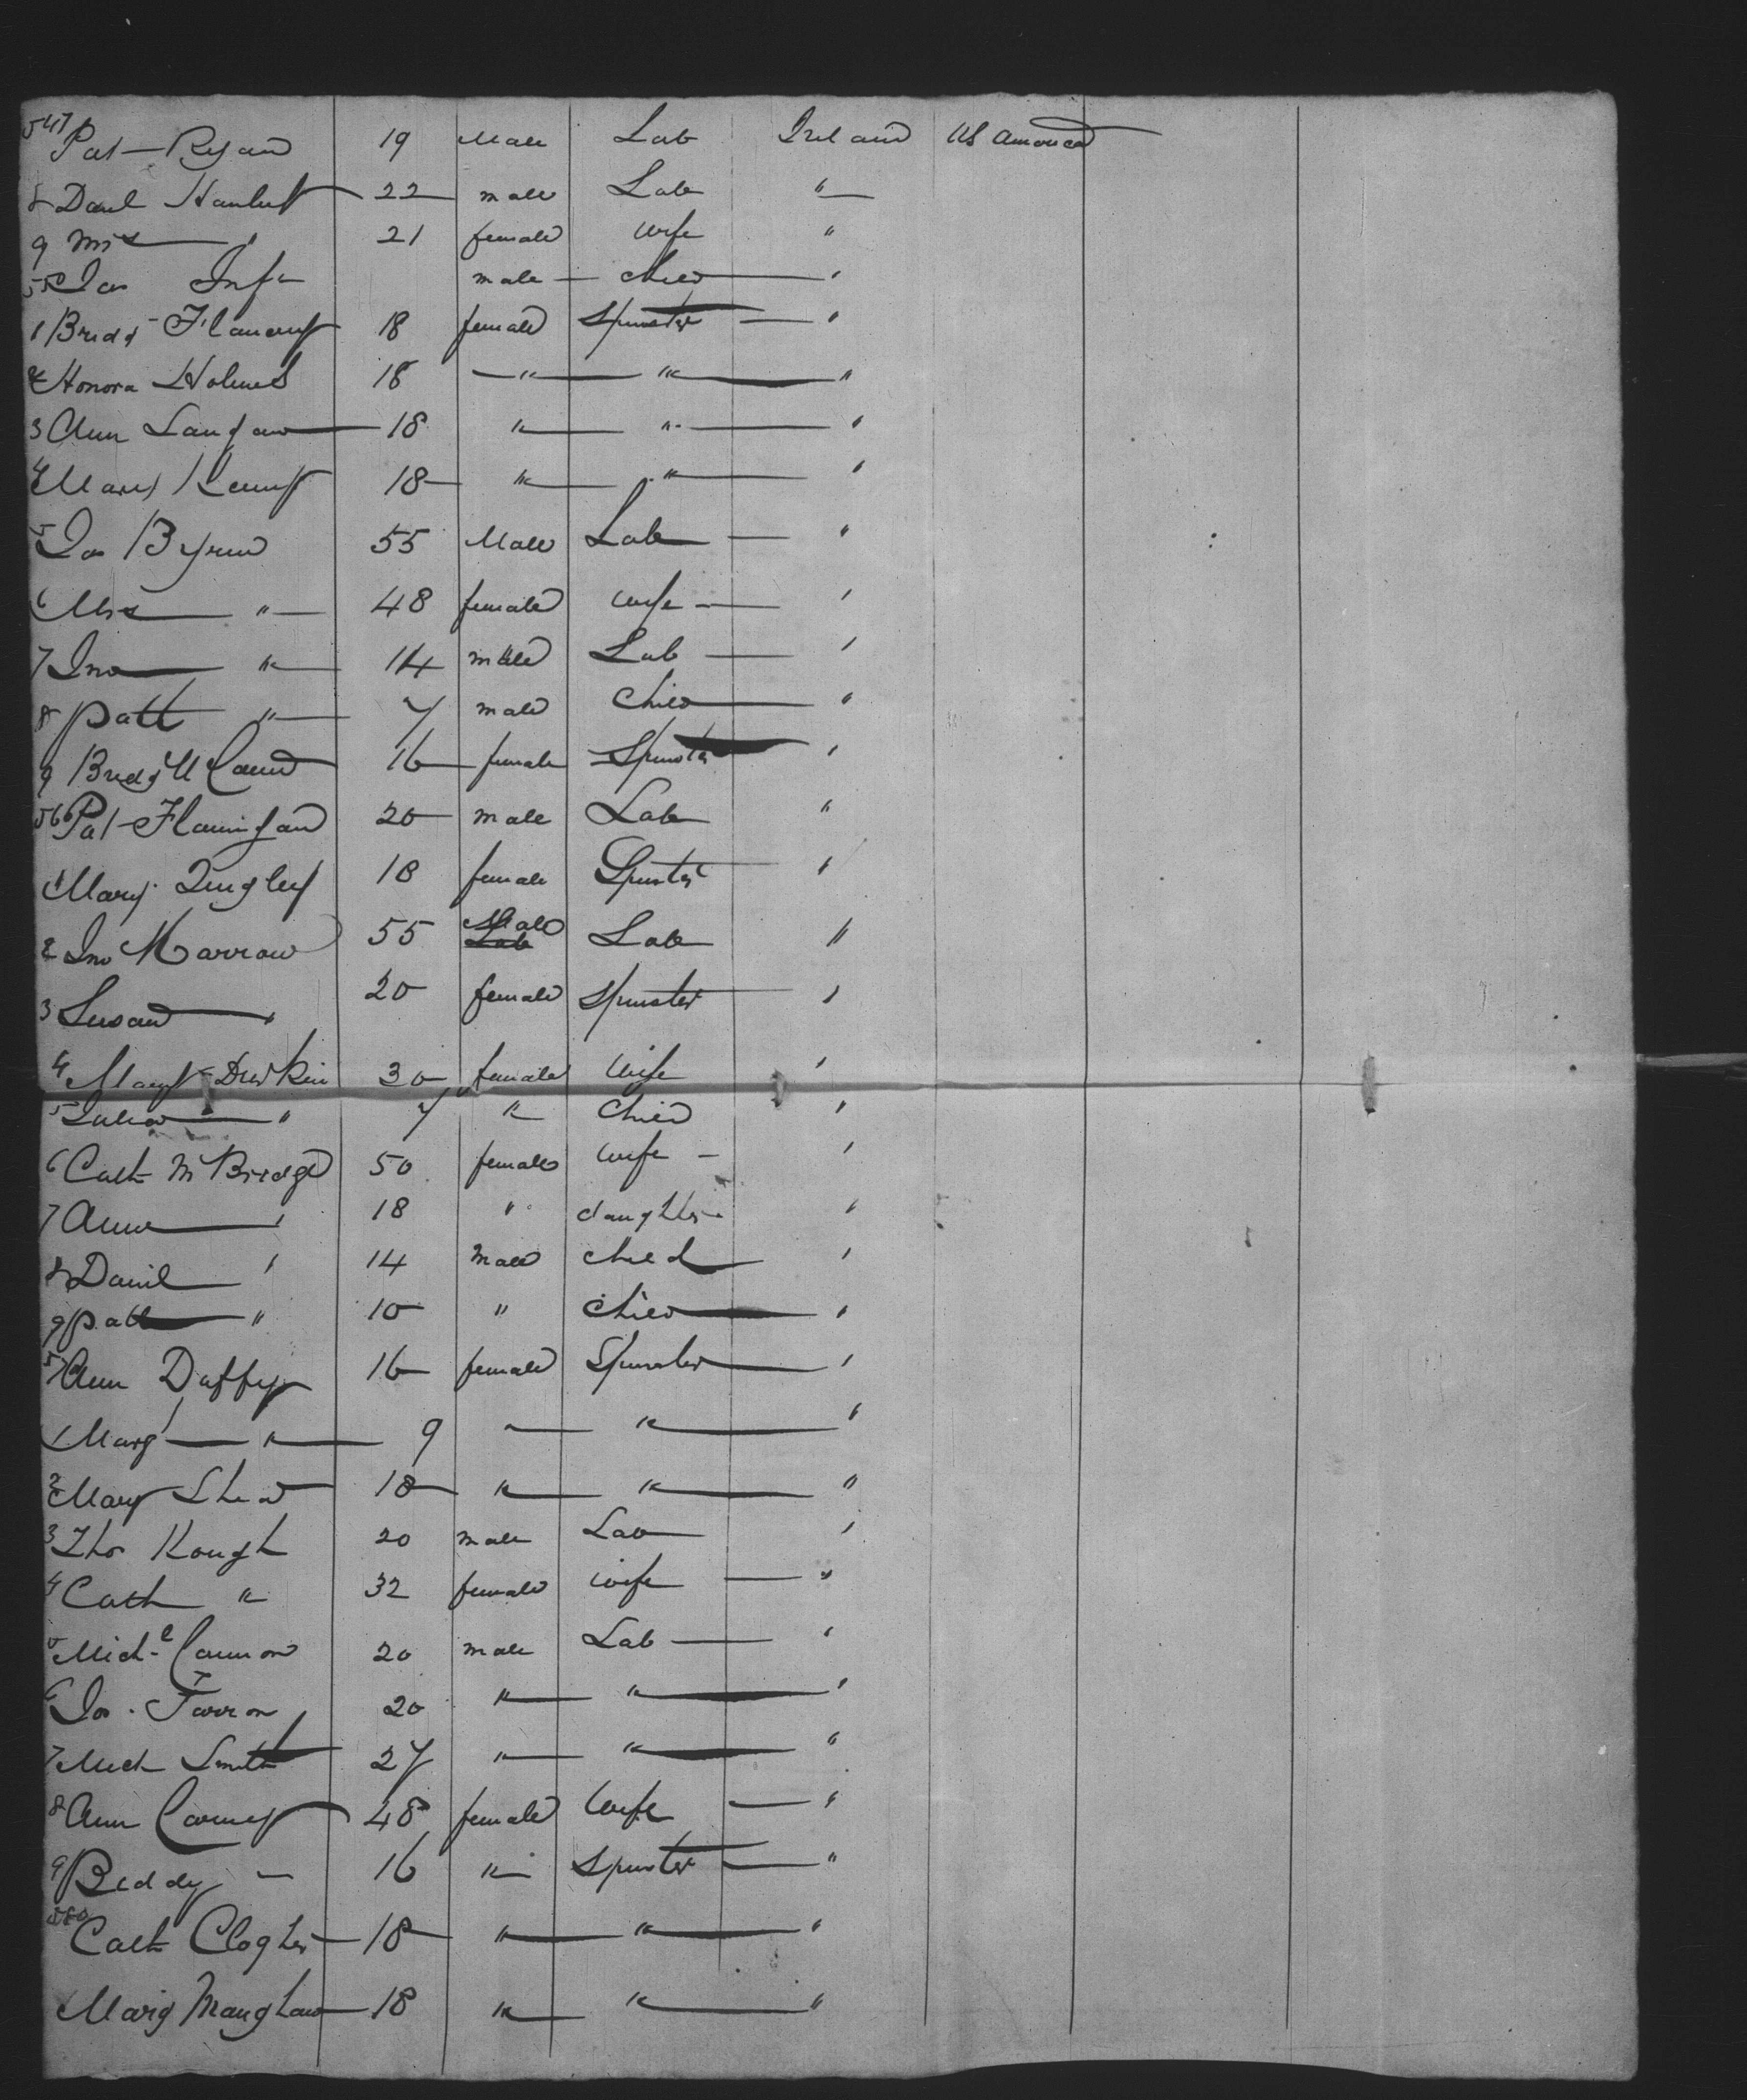 547 Pat Ryan 19 Male Lab Ireland US America
8 Danl 22 male Lab "
9 Mrs " 21 female wife "
550 Jas Inft male child "
1 Bridt 18 female Spinster "
2 Honora Holmes 18 " " "
3 Ann Langan 18 " " "
4 Mary Kenny 18 " " "
5 Jas Byrne 55 Male Lab "
6 Mrs " 48 female wife "
7 Jno " 14 male Lab "
8 Patt " 7 male child "
9 Bridg 16 female Spinster "
560 Pat Flannigan 20 male Lab "
1 Mary 18 female Spinster "
2 Jno Marrow 55 Male Lab Lab "
3 Susan " 20 female spinster "
4 Mary Durkin 30 female wife "
5 Julia " 7 " child "
6 Cath McBridge 50 female wife "
7 Anne " 18 " daughter "
8 Daniel " 14 Male child "
9 Patt " 10 " child "
570 Ann Duffy 16 female Spinster "
1 Marg " 9 " " "
2 Mary Shea 18 " " "
3 Thos Kough 20 male Lab "
4 Cath " 32 female wife "
5 Michl Cannon 20 male Lab "
6 Jas Farron 20 " " "
7 Mich Smith 27 " " "
8 Ann Carney 48 female Wife "
9 Biddy " 16 " Spinster "
580 Cath Clogher 18 " " "
1 Marg Maughan 18 " " "